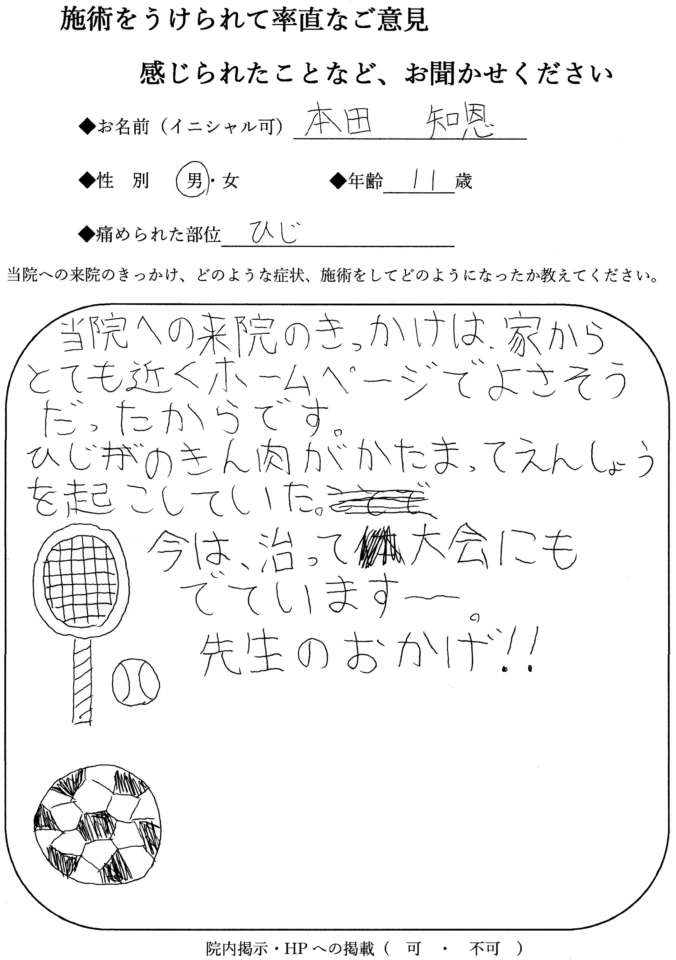 施術をうけられて率直なご意見
感じられたことなど、お聞かせください
◆お名前（イニシャル可） 本田 知恩
◆性 別 男・女 ◆年齢 11 歳
◆痛められた部位 ひじ
当院への来院のきっかけ、どのような症状、施術をしてどのようになったか教えてください。
当院への来院のきっかけは、家から
とても近くホームページでよさそう
だったからです。
ひじのきん肉がかたまってえんしょう
を起こしていた。
今は、治って大会にも
でています〜。
先生のおかげ!!
院内掲示・HPへの掲載（ 可 ・ 不可 ）